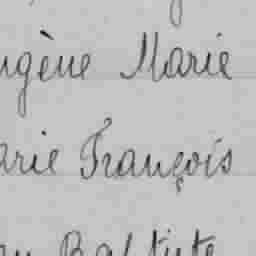 ugène Marie
arie François
Baptiste